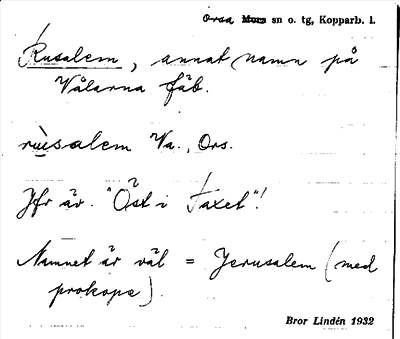 Orsa Mora sn o. tg, Kopparb. l.
Rusalem, annat namn på
Vålarna fäb.
rùsalem Va., Ors.
Jfr äv. "Öst i Taxet"!
Namnet är väl = Jerusalem (med
prokope).
Bror Lindén 1932